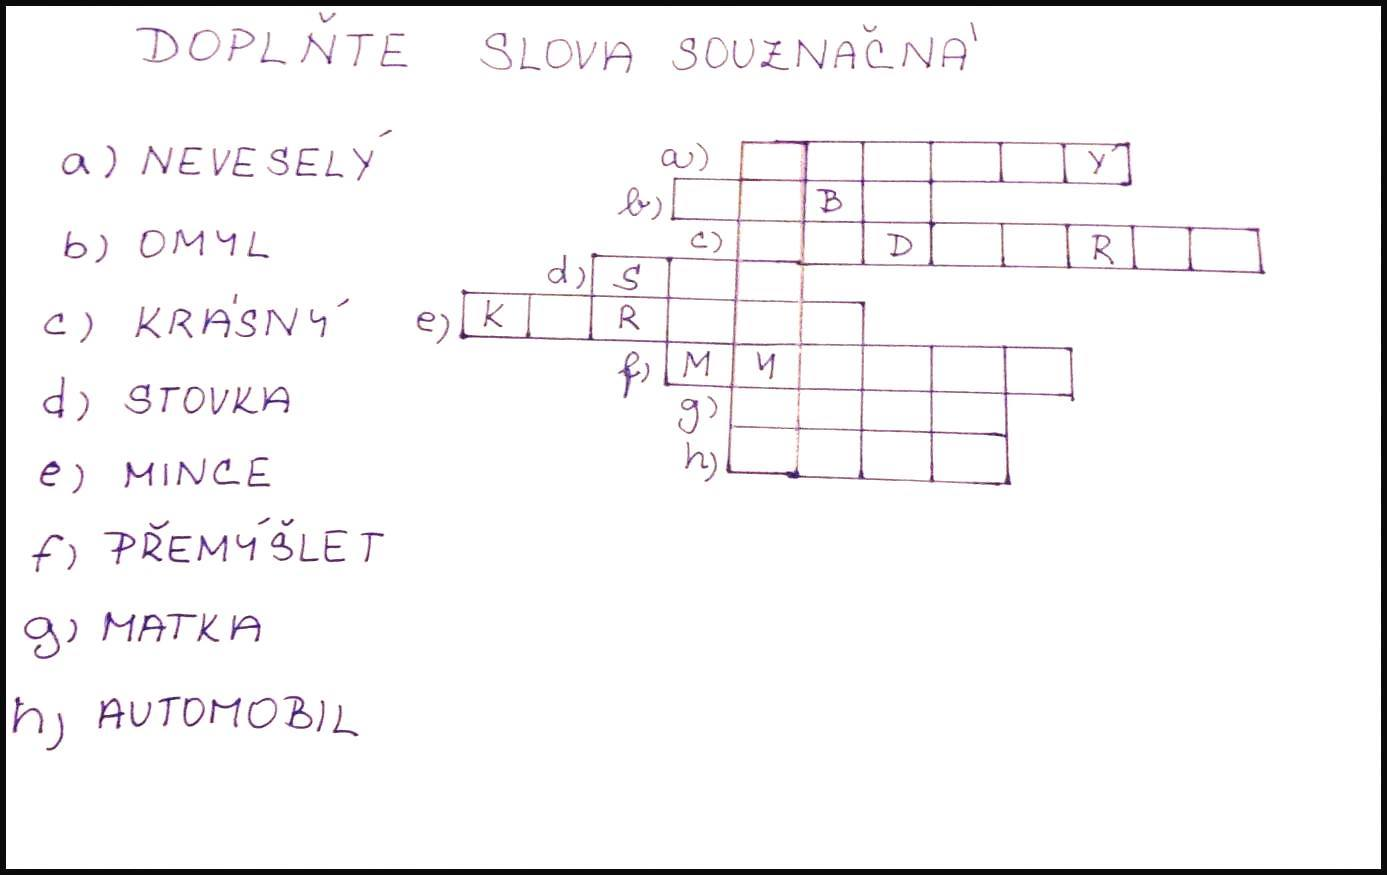 DOPLŇTE SLOVA SOUZNAČNÁ
a) NEVESELÝ
b) OMYL
c) KRÁSNÝ
d) STOVKA
e) MINCE
f) PŘEMÝŠLET
g) MATKA
h) AUTOMOBIL
a) Ý
b) B
c) D R
d) S
e) K R
f) M Y
g)
h)